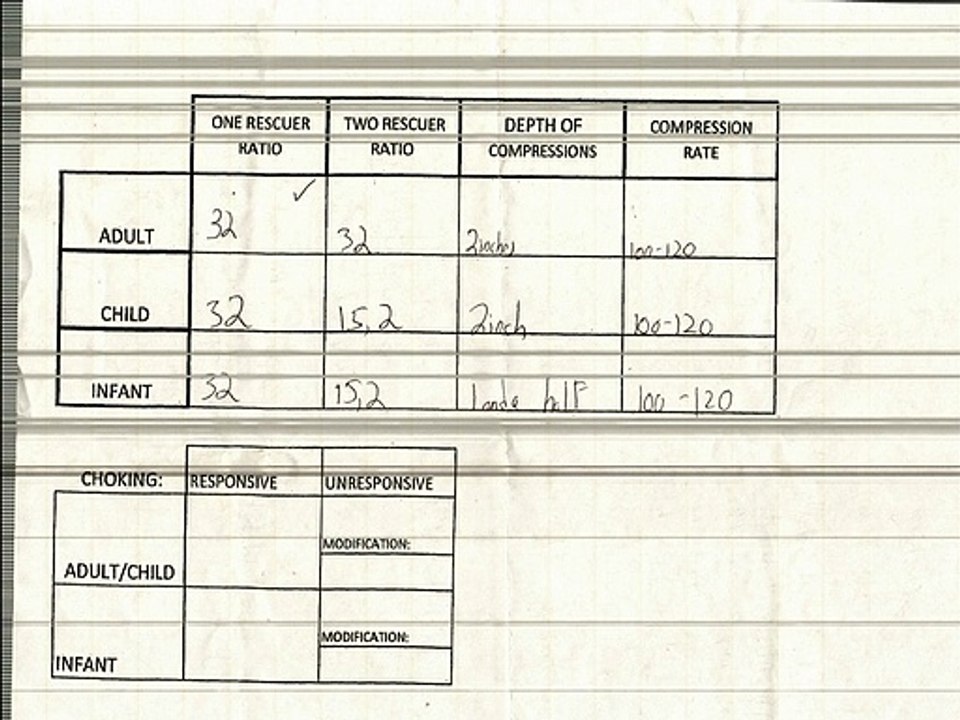 ONE RESCUER RATIO TWO RESCUER RATIO DEPTH OF COMPRESSIONS COMPRESSION RATE
ADULT 32 32 2inches 100-120
CHILD 32 15,2 2inch 100-120
INFANT 32 15,2 1 half 100-120
CHOKING: RESPONSIVE UNRESPONSIVE
MODIFICATION:
ADULT/CHILD
MODIFICATION:
INFANT